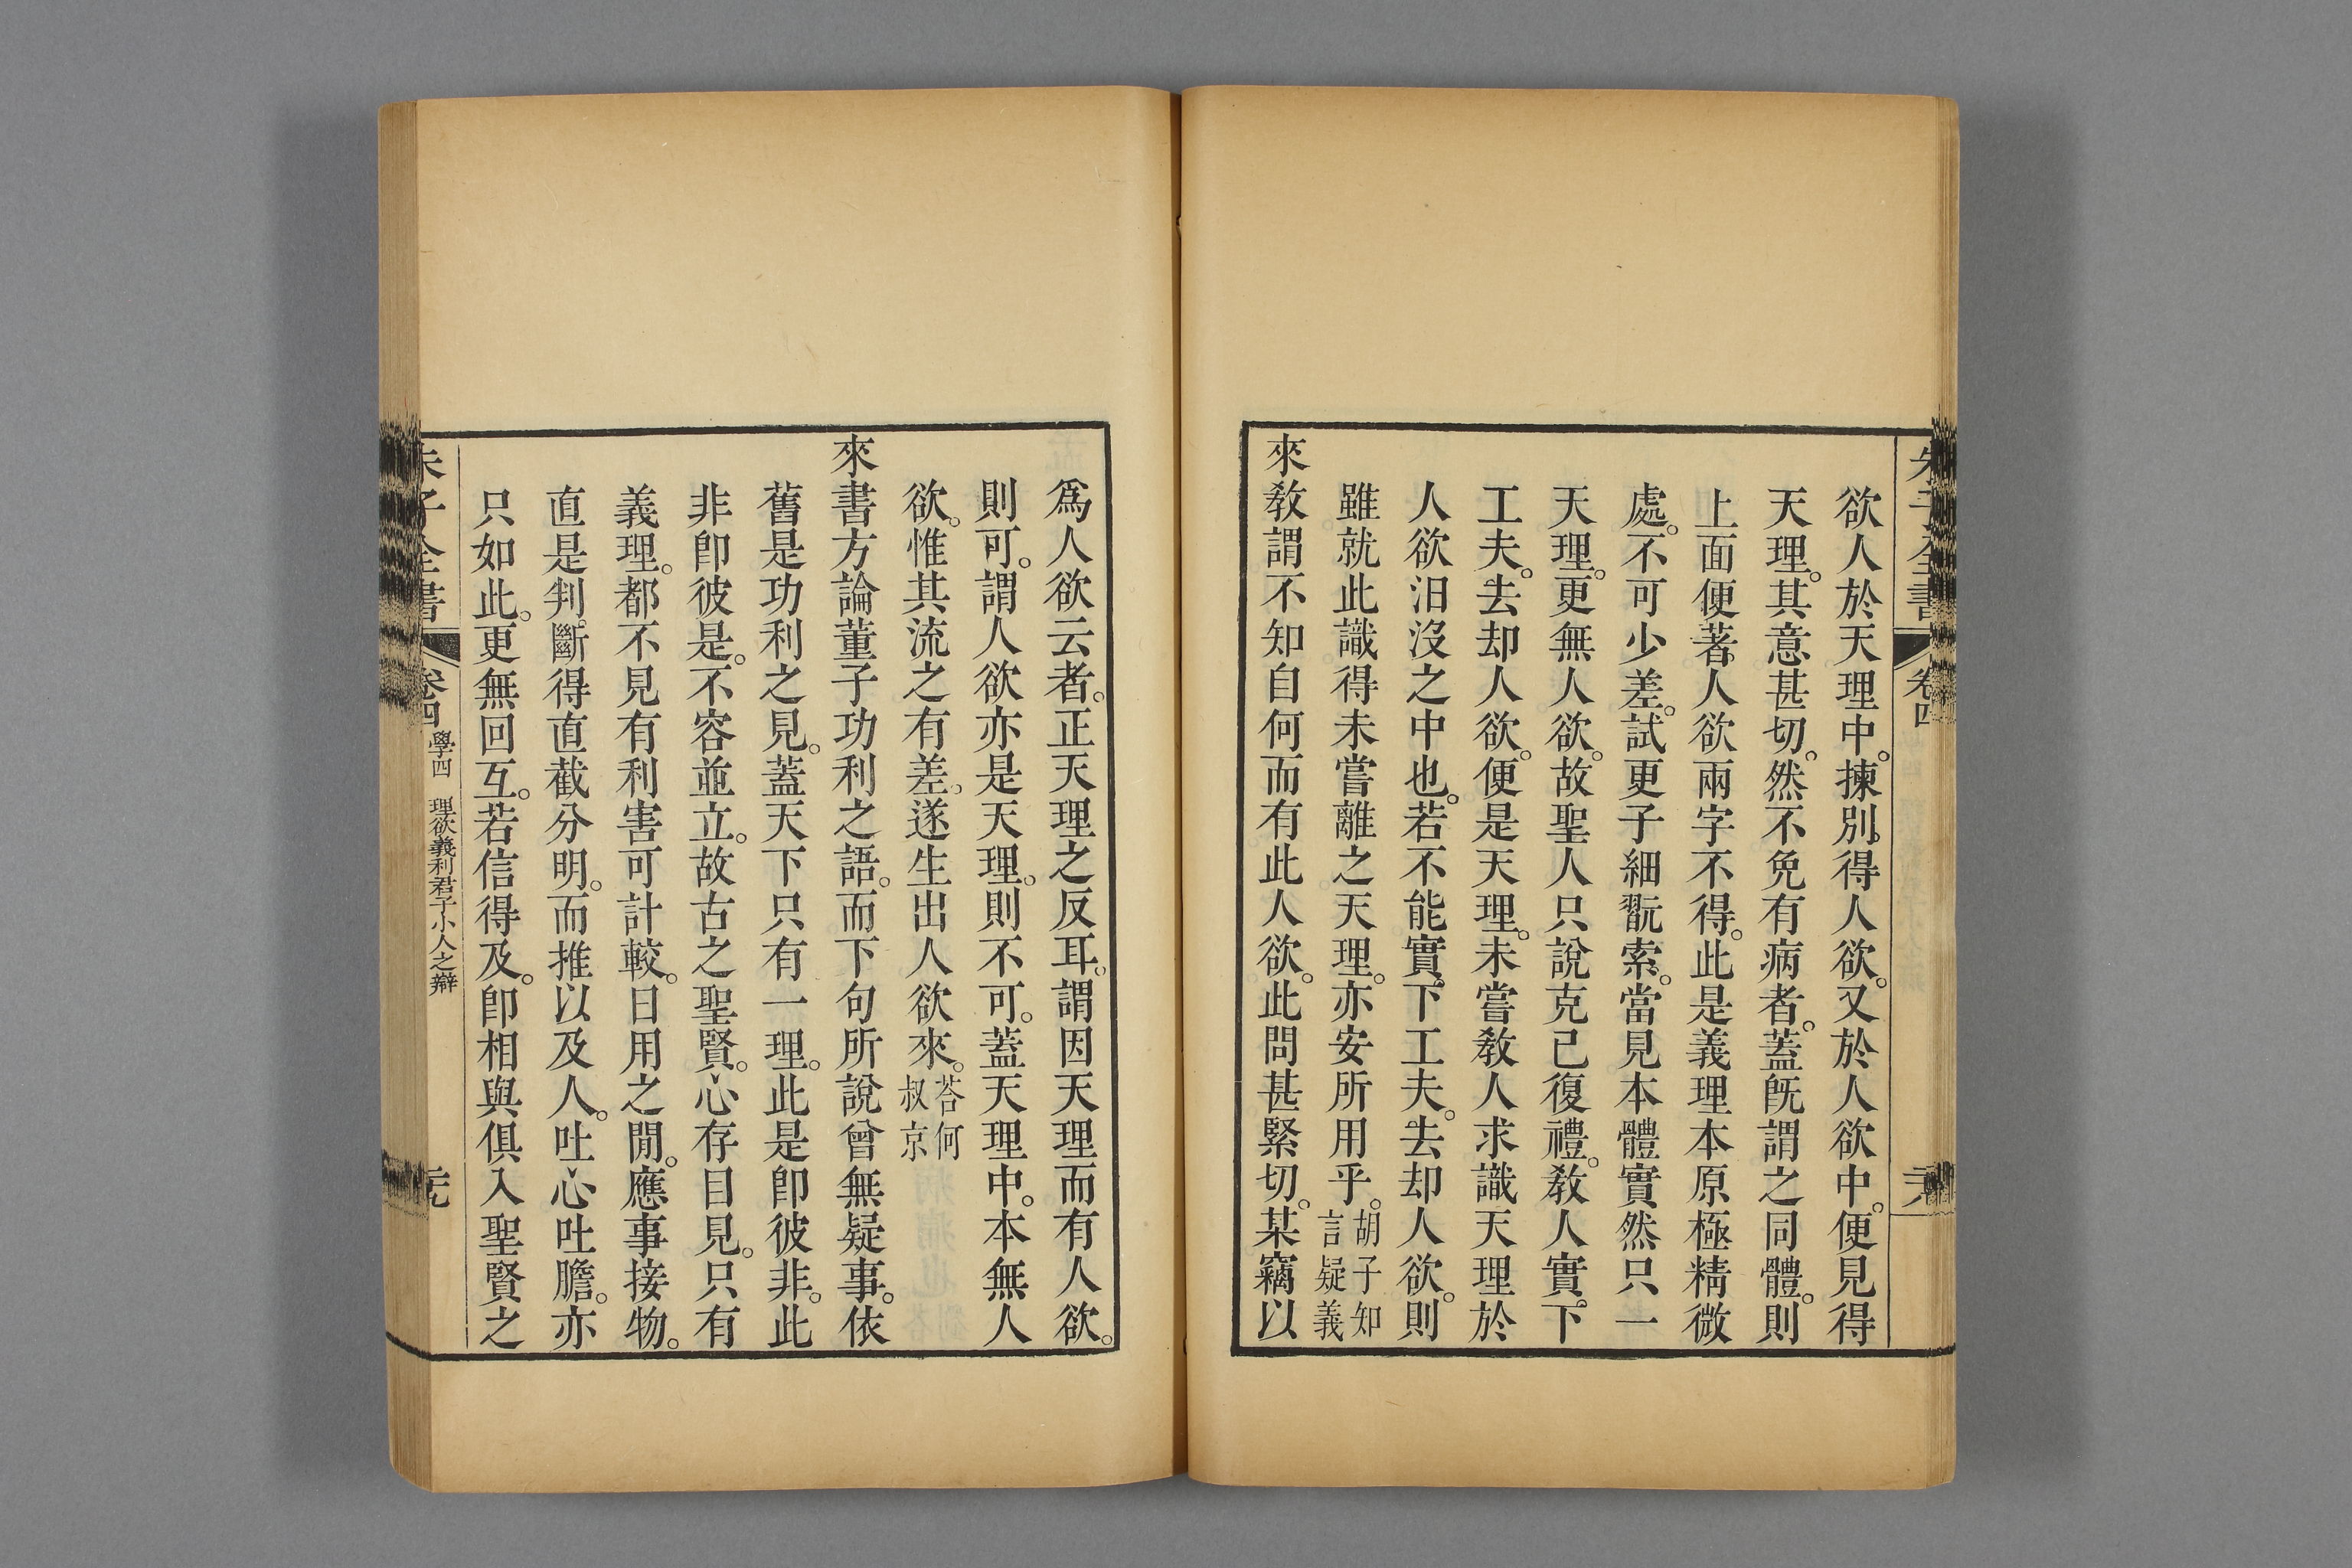 朱子全書 卷四
欲人於天理中。揀別得人欲。又於人欲中。便見得
天理。其意甚切。然不免有病者。蓋旣謂之同體。則
上面便著人欲兩字不得。此是義理本原極精微
處。不可少差。試更子細翫索。當見本體實然只一
天理。更無人欲。故聖人只說克己復禮。敎人實下
工夫。去却人欲。便是天理。未嘗敎人求識天理於
人欲汨沒之中也。若不能實下工夫。去却人欲。則
雖就此識得未嘗離之天理。亦安所用乎。胡子知言疑義
來敎謂不知自何而有此人欲。此問甚緊切。某竊以
爲人欲云者。正天理之反耳。謂因天理而有人欲。
則可。謂人欲亦是天理。則不可。蓋天理中。本無人
欲。惟其流之有差。遂生出人欲來。荅何叔京
來書方論董子功利之語。而下句所說曾無疑事。依
舊是功利之見。蓋天下只有一理。此是卽彼非。此
非卽彼是。不容並立。故古之聖賢。心存目見。只有
義理。都不見有利害可計較。日用之閒。應事接物。
直是判斷得直截分明。而推以及人。吐心吐膽。亦
只如此。更無回互。若信得及。卽相與俱入聖賢之
朱子全書 卷四 學四 理欲義利君子小人之辯